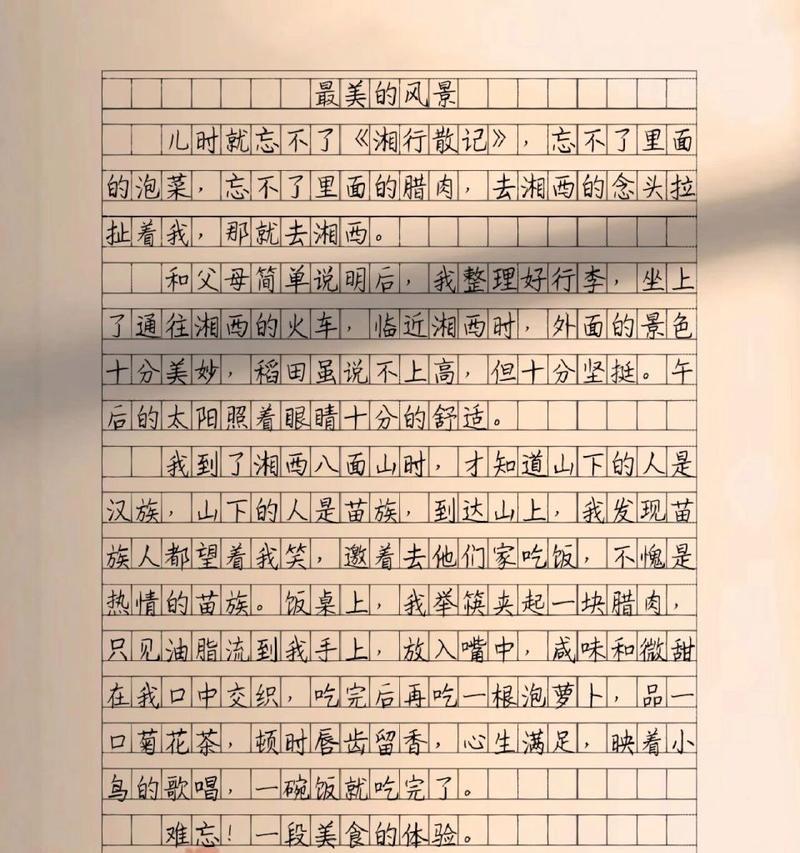 最美的风景
儿时就忘不了《湘行散记》，忘不了里面
的泡菜，忘不了里面的腊肉，去湘西的念头拉
扯着我，那就去湘西。
和父母简单说明后，我整理好行李，坐上
了通往湘西的火车，临近湘西时，外面的景色
十分美妙，稻田虽说不上高，但十分坚挺。午
后的太阳照着眼睛十分的舒适。
我到了湘西八面山时，才知道山下的人是
汉族，山下的人是苗族，到达山上，我发现苗
族人都望着我笑，邀着去他们家吃饭，不愧是
热情的苗族。饭桌上，我举筷夹起一块腊肉，
只见油脂流到我手上，放入嘴中，咸味和微甜
在我口中交织，吃完后再吃一根泡萝卜，品一
口菊花茶，顿时唇齿留香，心生满足，映着小
鸟的歌唱，一碗饭就吃完了。
难忘！一段美食的体验。